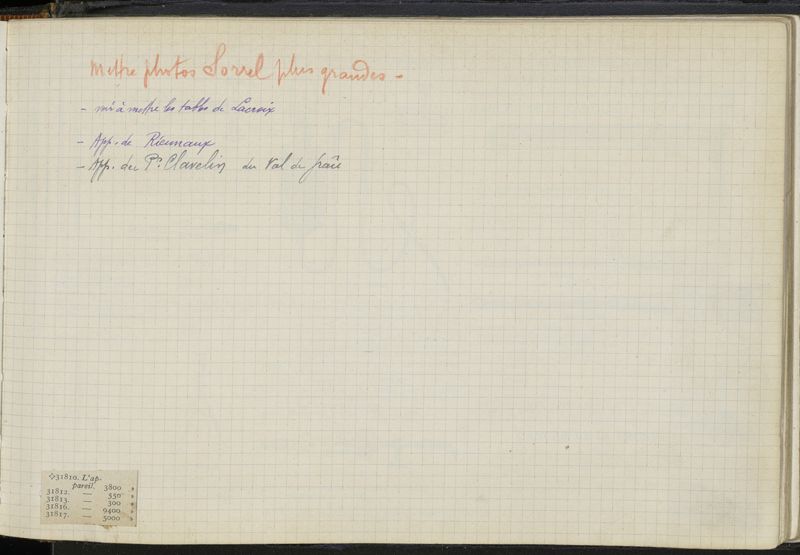 Mettre photos Sorrel plus grandes -
- à mettre les tables de Lacroix
- App. de Rieunaux
- App. du Pr. Clavelin du Val de grâce
31810. L'ap-
pareil. 3800 »
31812. — 550 »
31813. — 300 »
31816. — 9400 »
31817. — 5000 »